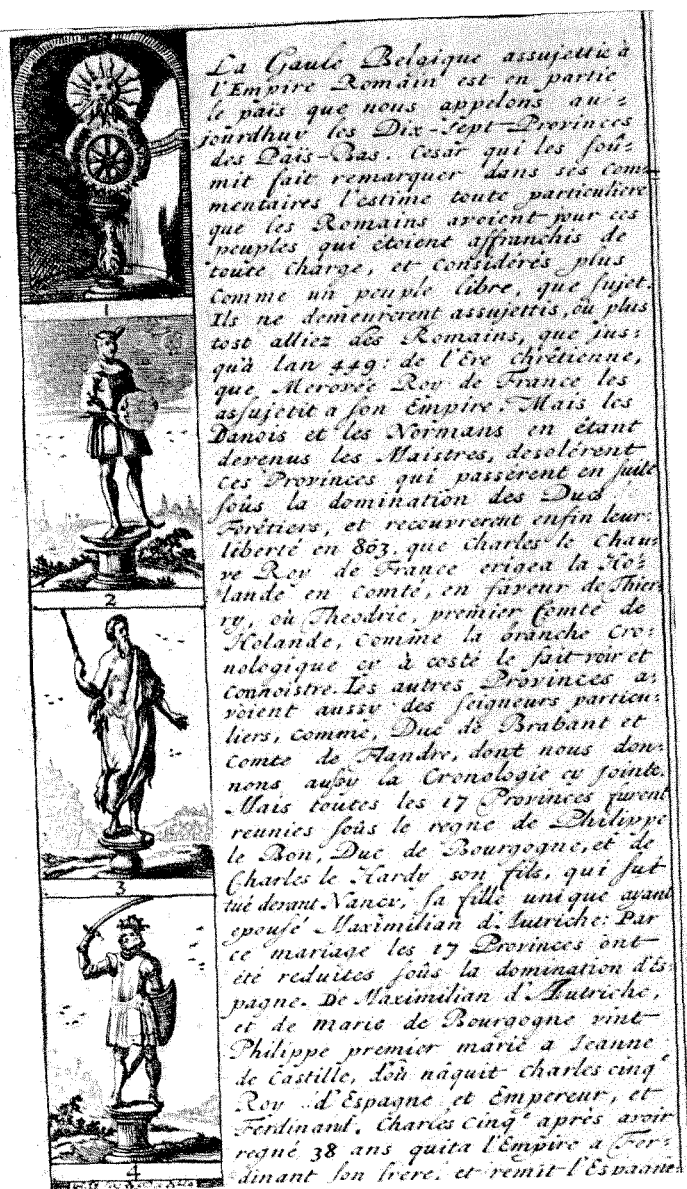 La Gaule Belgique assujettie à
l'Empire Romain est en partie
le païs que nous appelons au-
jourdhuy les Dix-Sept Provinces
des Païs-Bas. Cesar qui les soû-
mit fait remarquer dans ses com-
mentaires l'estime toute particuliere
que les Romains avoient pour ces
peuples qui étoient affranchis de
toute charge, et considérés plus
comme un peuple libre, que sujet.
Ils ne demeurerent assujettis, ou plus
tost alliez des Romains, que jus-
qu'à lan 449: de l'Ere chrétienne,
que Merovée Roy de France les
assujetit a son Empire. Mais les
Danois et les Normans en étant
devenus les Maistres, desolérent
ces Provinces qui passérent en suite
soûs la domination des Ducs
Forêtiers, et recouvrerent enfin leur
liberté en 863. que Charles le Chau-
ve Roy de France erigea la Ho-
lande en Comté, en faveur de Thier-
ry, où Theodric, premier Comte de
Holande, comme la branche cro-
nologique cy à costé le fait voir et
connoistre. Les autres Provinces a-
voient aussy des seigneurs particu-
liers, comme, Duc de Brabant et
Comte de Flandre, dont nous don-
nons aussy la Cronologie cy jointe.
Mais toutes les 17 Provinces furent
reunies soûs le regne de Philippe
le Bon, Duc de Bourgogne, et de
Charles le Hardy son fils, qui fut
tué devant Nancy, sa fille unique ayant
epousé Maximilian d'Autriche: Par
ce mariage les 17 Provinces ont
été reduites soûs la domination d'Es-
pagne. De Maximilian d'Autriche,
et de marie de Bourgogne vint
Philippe premier marié a Jeanne
de Castille, d'où nâquit Charles cinq.e
Roy d'Espagne et Empereur, et
Ferdinant. Charles cinq.e après avoir
regné 38 ans quita l'Empire a Fer-
dinant son frere, et remit l'Espagne
1
2
3
4